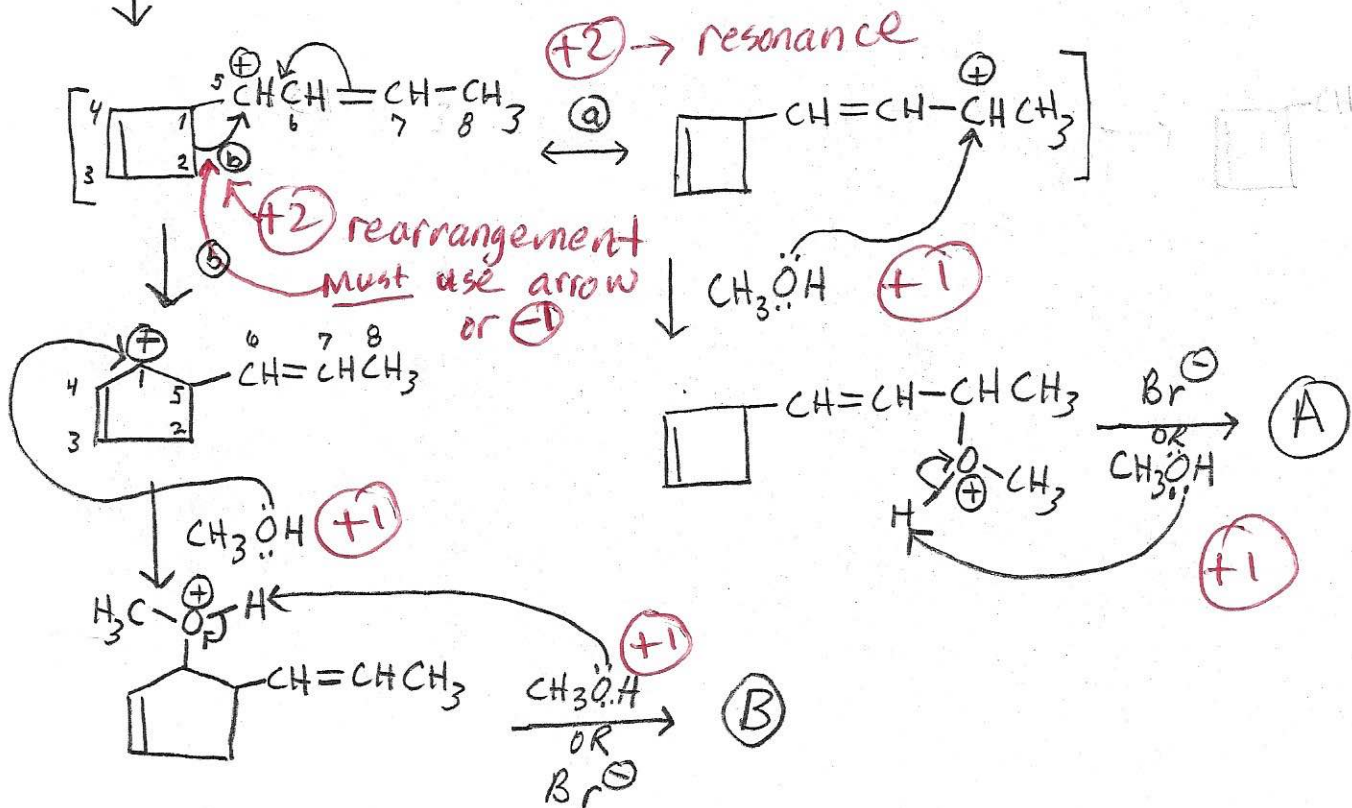 +2 → resonance
5 ⊕CHCH=CH-CH3
4 1 6 7 8
3 2 ⓑ
ⓐ
-CH=CH-⊕CHCH3
CH
+2 rearrangement
ⓑ Must use arrow
or -1
CH3ÖH +1
⊕ 6 7 8
4 1 5 CH=CHCH3
3 2
CH=CH-CHCH3
O-CH3
⊕
H
Br⊖
OR
CH3ÖH
A
+1
CH3ÖH +1
⊕
H3C-O-H
CH=CHCH3
+1
CH3ÖH
OR
Br⊖
B